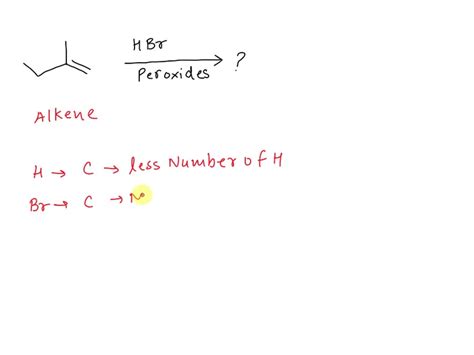 HBr
Peroxides
?
Alkene
H → C → less Number of H
Br → C → N